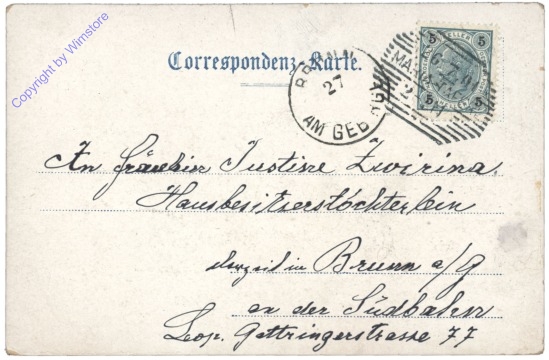 Copyright by Wimstore
Correspondenz-Karte.
5 HELLER 5
BRUNN
27
AM GEBIRGE
5 HELLER 5
An Fräulein Justine Zwirina.
Hausbesitzerstöchterlein
derzeit in Brunn a/G
an der Südbahn
Leop. Gattringerstrasse 77